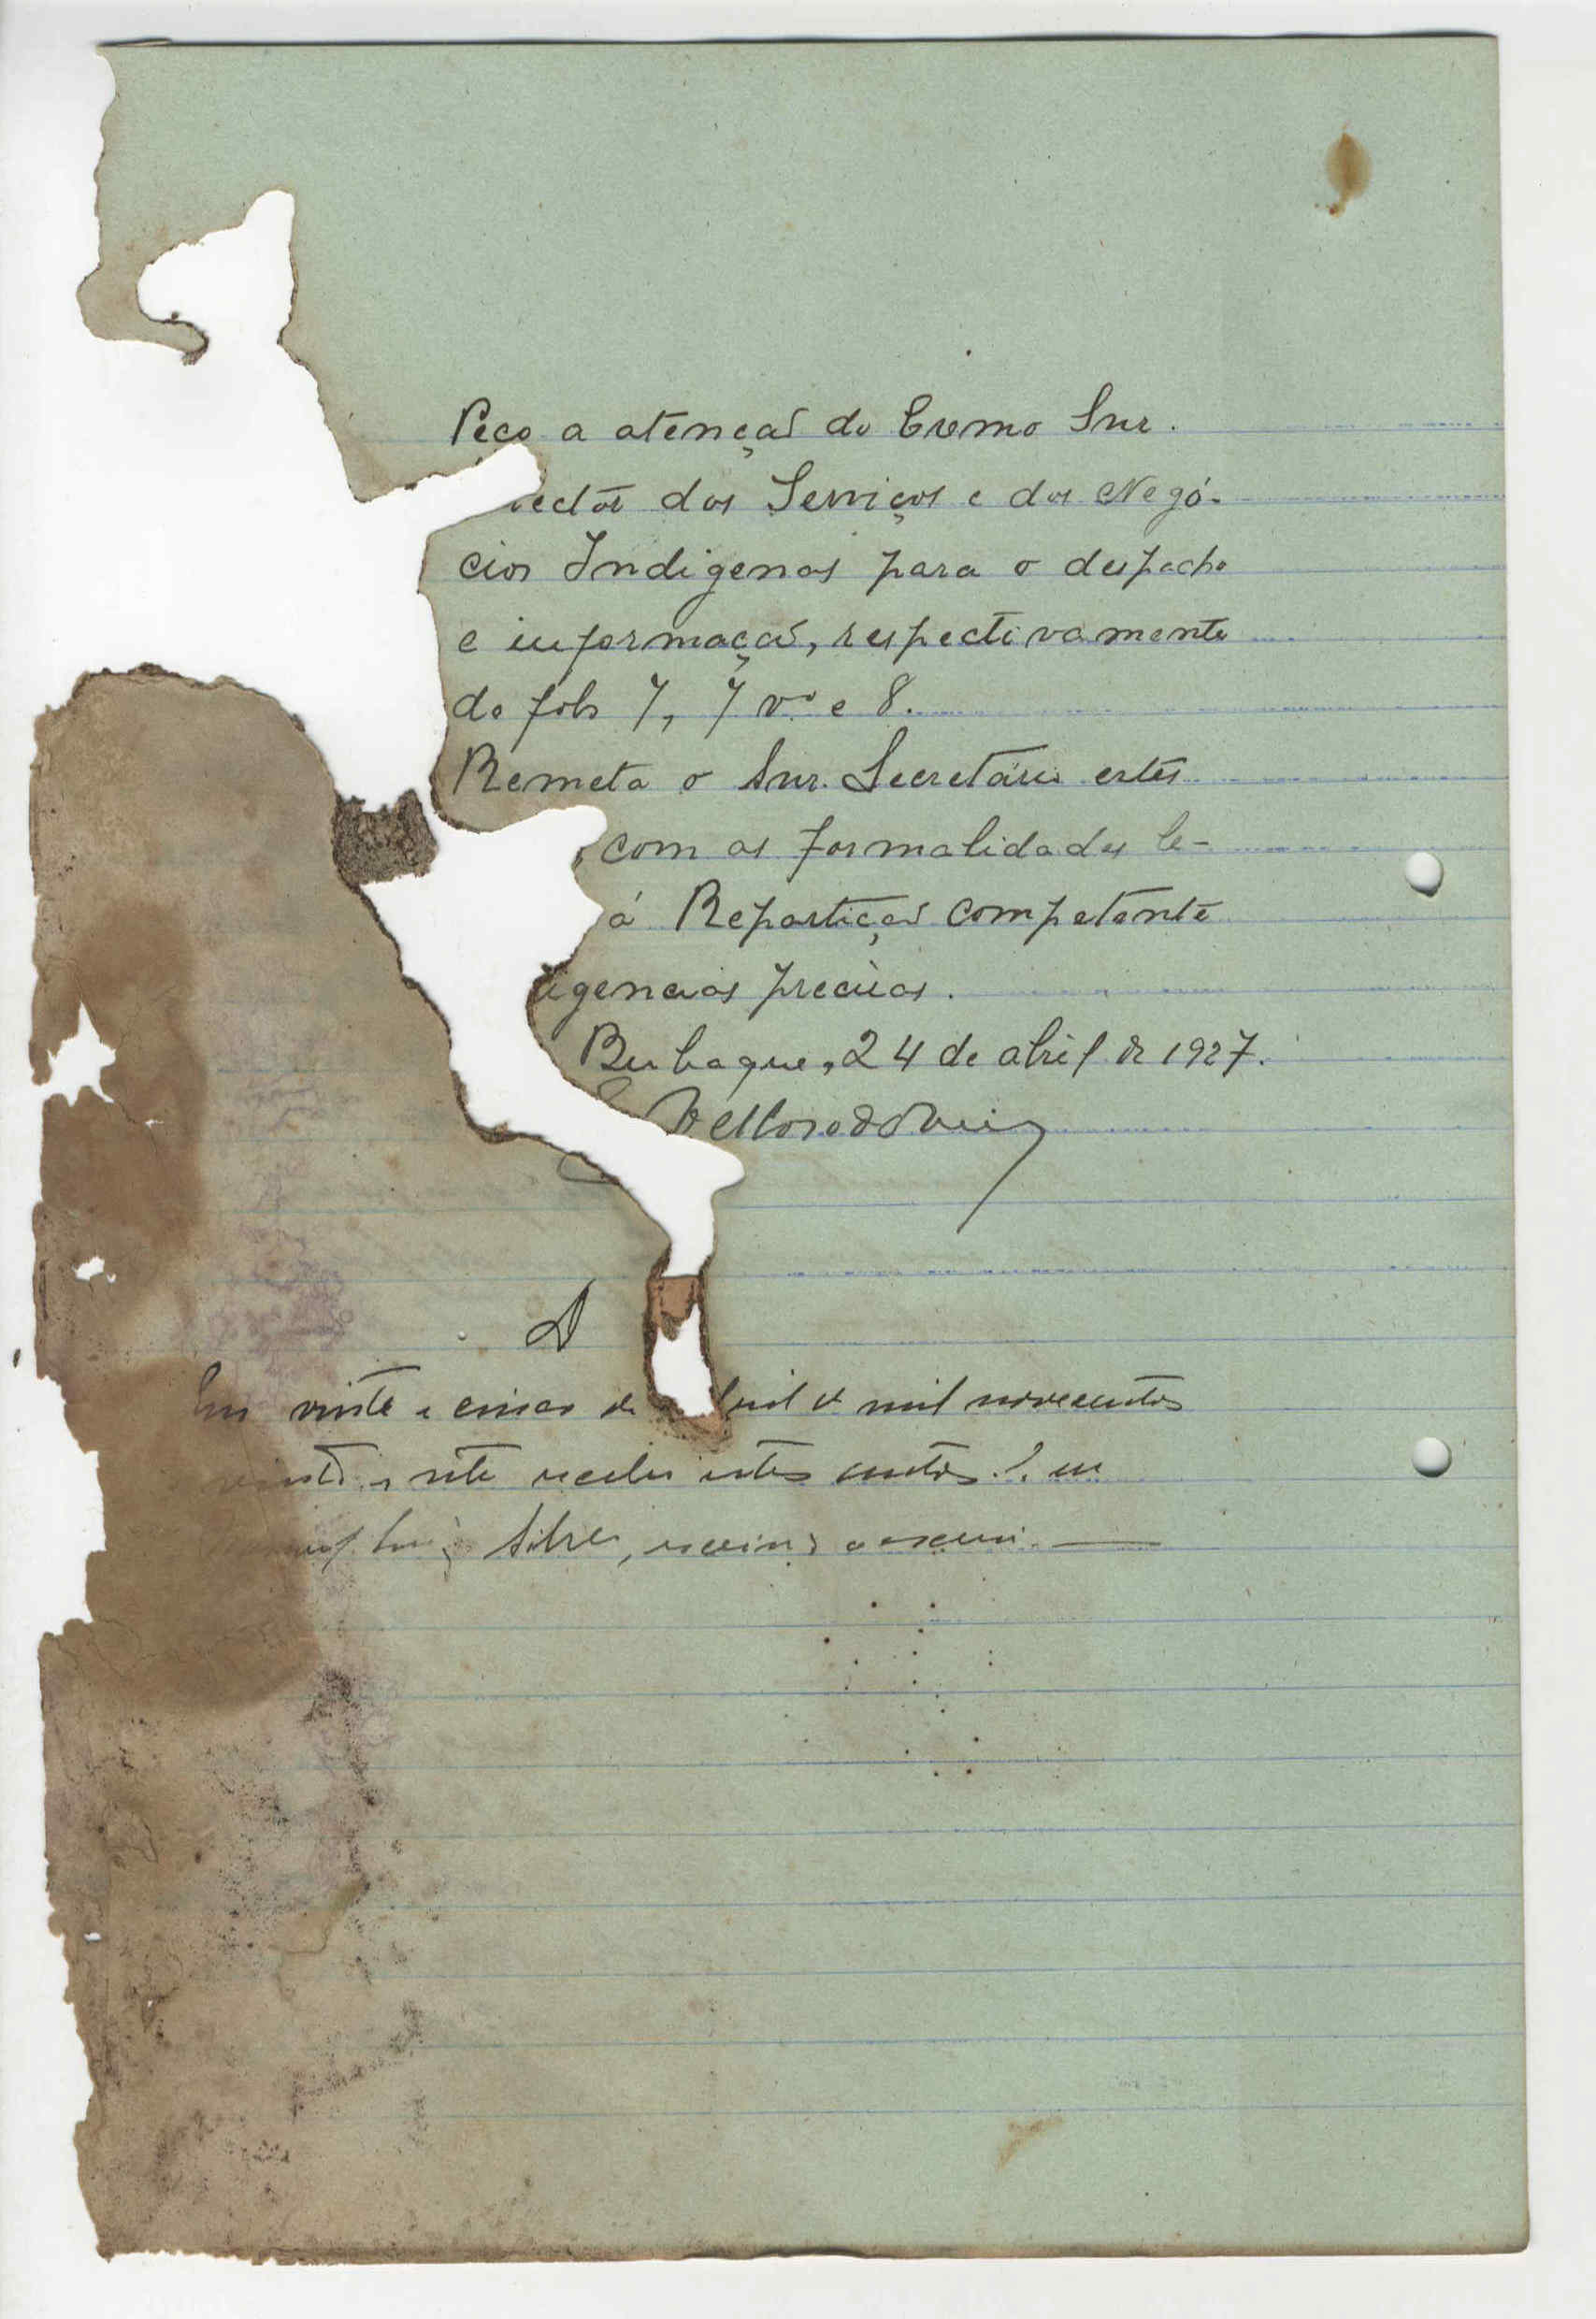 Peço a atenção do Exmo Snr.
rectôr dos Serviços e dos Negó-
cios Indigenas para o despacho
e informação, respectivamente
de fols 7, 7 vº e 8.
Remeta o Snr. Secretário estes
com as formalidades le-
á Repartição competente
igencias precisas.
Bubaque, 24 de abril de 1927.
A
Em vinte e cinco de abril de mil novecentos
vinte e sete recebi estes autos. E eu
Silva, escrivão o escrevi.